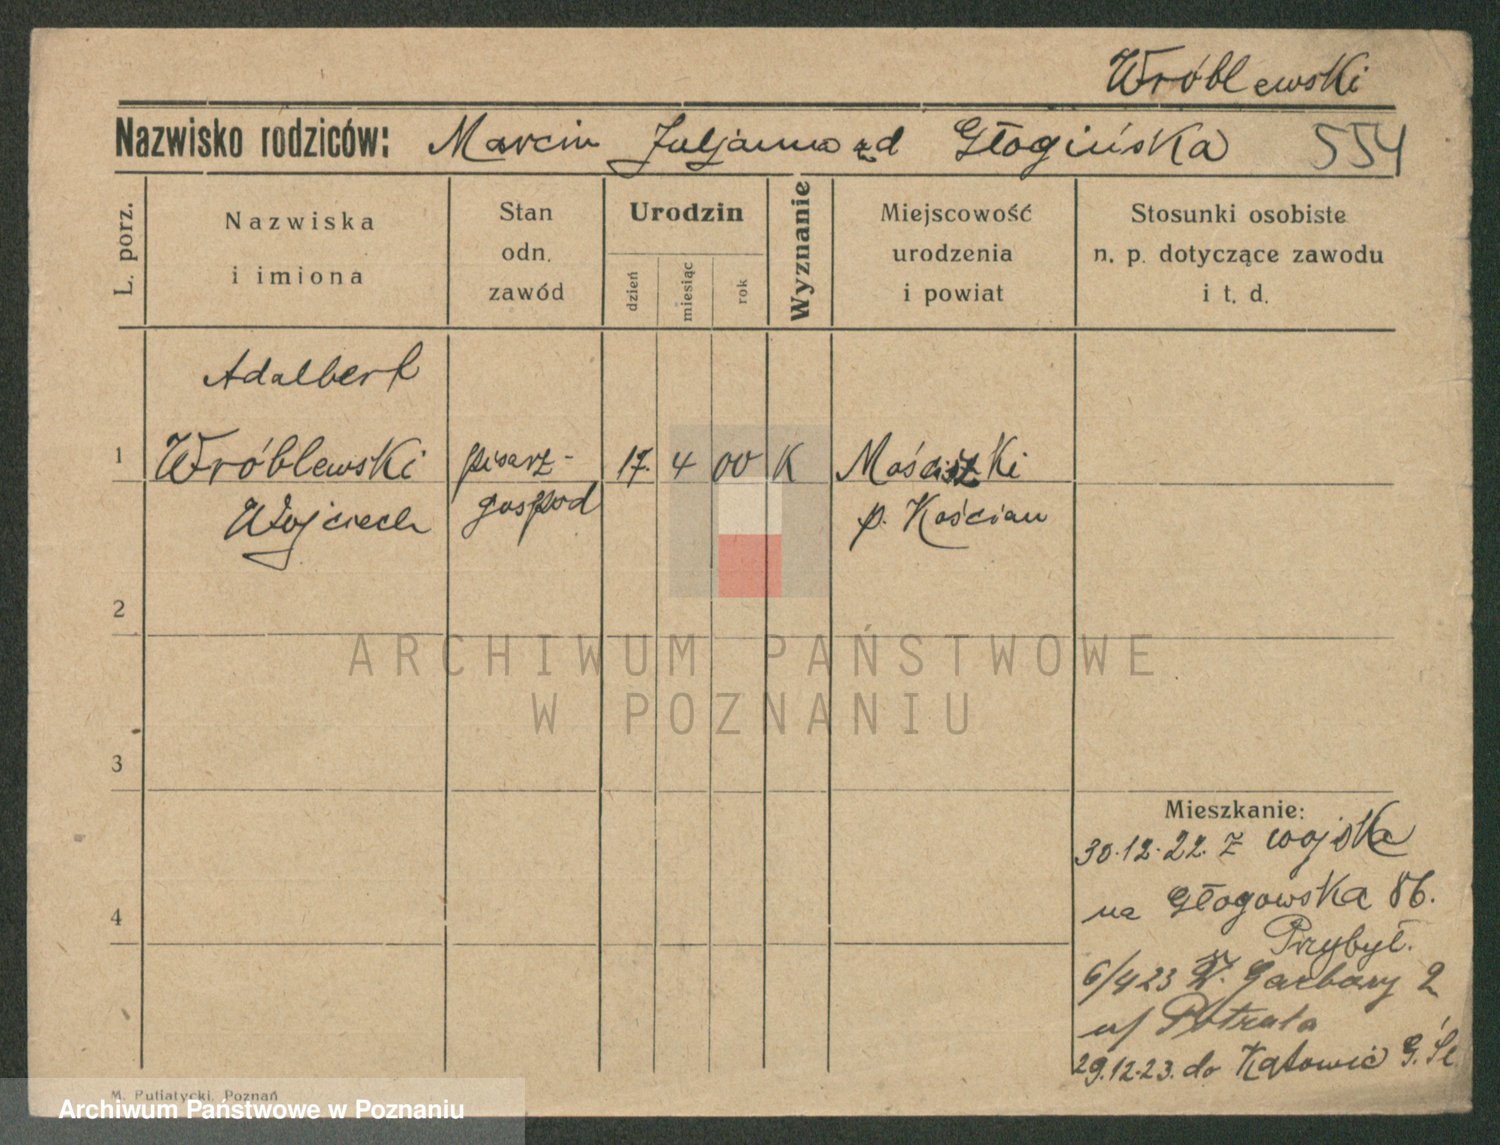 Wróblewski
Nazwisko rodziców: Marcin Juljanna zd Głogińska 554
L. porz.
Nazwiska
i imiona
Stan
odn.
zawód
Urodzin
dzień
miesiąc
rok
Wyznanie
Miejscowość
urodzenia
i powiat
Stosunki osobiste
n. p. dotyczące zawodu
i t. d.
Adalbert
1 Wróblewski pisarz- 17. 4 00 K Mościszki
Wojciech gospod p. Kościan
2
3
4
Mieszkanie:
30.12.22. z wojska
na Głogowska 86.
Przybył.
6/4 23 W. Garbary 2
u/
29.12.23. do Katowic G. Śl
ARCHIWUM PAŃSTWOWE
W POZNANIU
M. Putiatycki, Poznań
Archiwum Państwowe w Poznaniu